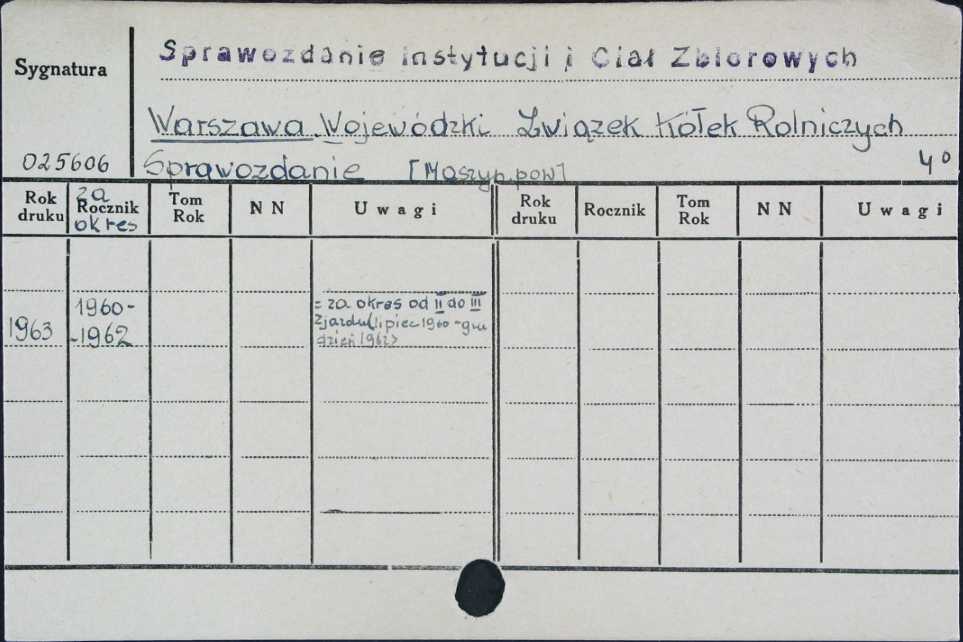 Sprawozdanie instytucji i Ciał Zbiorowych
Sygnatura
Warszawa Wojewódzki Związek Kółek Rolniczych
025606 Sprawozdanie [Maszyn.pow] 4°
Rok druku za Rocznik okres Tom Rok N N Uwagi Rok druku Rocznik Tom Rok N N Uwagi
1963 1960-
-1962
= za okres od II do III
Zjazdu (lipiec 1960 - gru
dzień 1962)